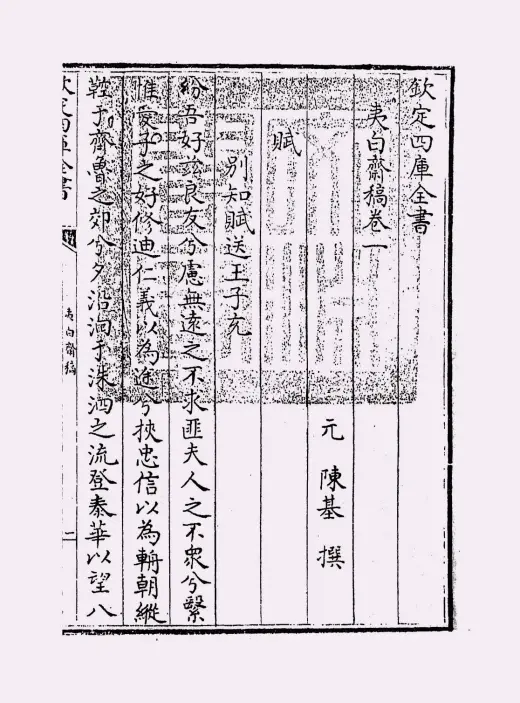 欽定四庫全書
夷白齋稿卷一
元 陳基 撰
賦
別知賦送王子充
紛吾好茲良友兮慮無遠之不求匪夫人之不衆兮繄
惟爰子之好修迪仁義以為途兮挾忠信以為輈朝縱
轡于齊魯之郊兮夕沿洄于洙泗之流登泰華以望八
欽定四庫全書
夷白齋稿
二